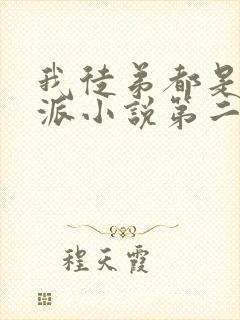 我徒弟都是
派小说第二
程天霞